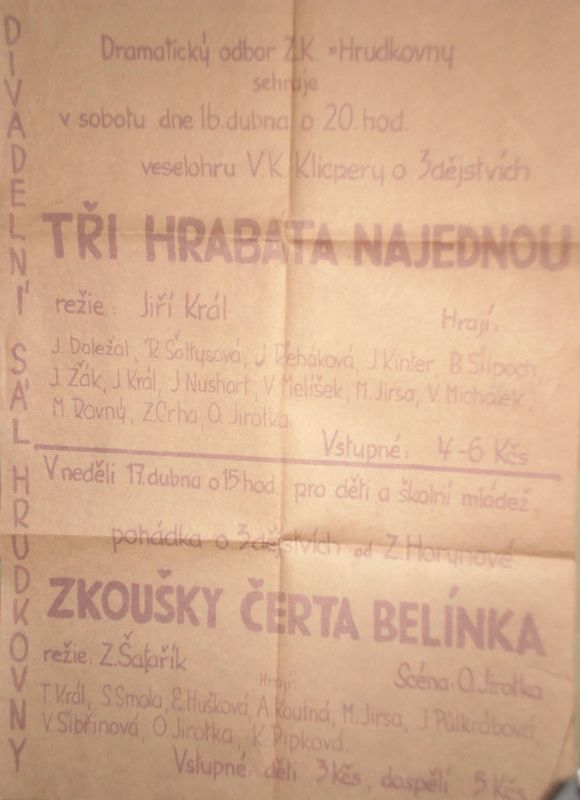 DIVADELNÍ SÁL HRUDKOVNY
Dramatický odbor Z.K. "Hrudkovny
sehraje
v sobotu dne 16. dubna o 20. hod.
veselohru V.K. Klicpery o 3 dějstvích
TŘI HRABATA NAJEDNOU
režie: Jiří Král
Hrají:
J. Doležal, R. Šoltysová, J. Řeháková, J. Kinter, B. Slípoch,
J. Žák, J. Král, J. Nushart, V. Melíšek, M. Jirsa, V. Michálek,
M. Rovný, Z. Crha, O. Jirotka
Vstupné: 4-6 Kčs
V neděli 17. dubna o 15 hod. pro děti a školní mládež,
pohádka o 3 dějstvích od Z. Horynové
ZKOUŠKY ČERTA BELÍNKA
režie: Z. Šafařík
Scéna: O. Jirotka
Hrají:
T. Král, S. Smola, E. Hušková, A. Koutná, M. Jirsa, J. Půlkrábová,
V. Sibřinová, O. Jirotka, K. Pipková.
Vstupné: děti 3 Kčs, dospělí 5 Kčs